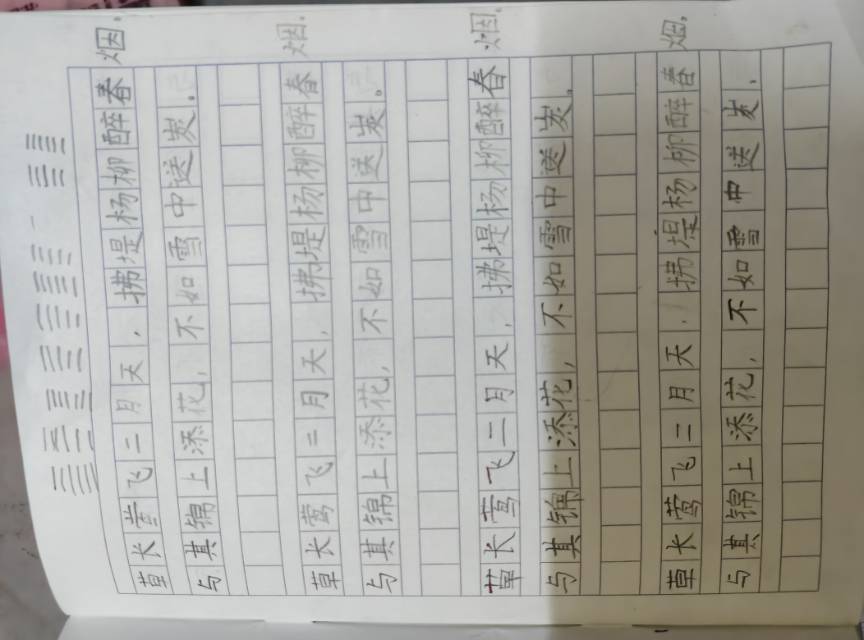 草长莺飞二月天，拂堤杨柳醉春烟。
与其锦上添花，不如雪中送炭。
草长莺飞二月天，拂堤杨柳醉春烟。
与其锦上添花，不如雪中送炭。
草长莺飞二月天，拂堤杨柳醉春烟。
与其锦上添花，不如雪中送炭。
草长莺飞二月天，拂堤杨柳醉春烟。
与其锦上添花，不如雪中送炭。